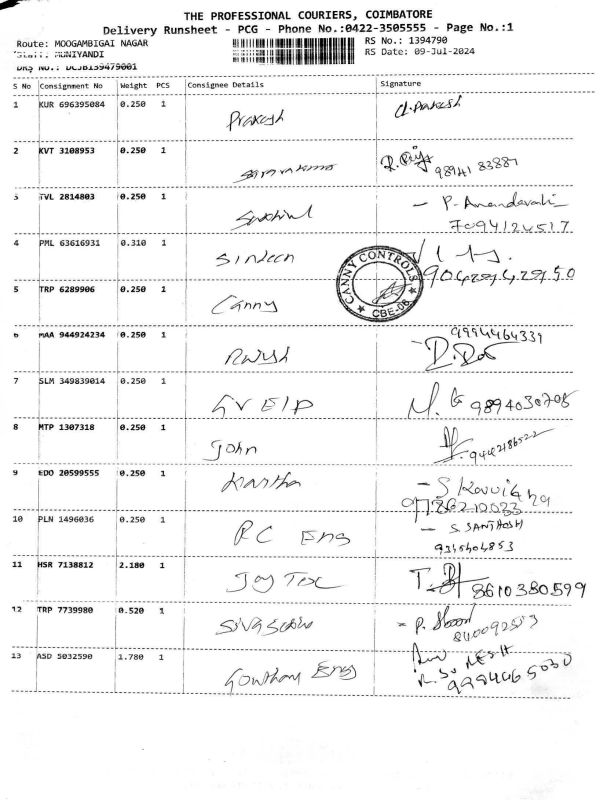 THE PROFESSIONAL COURIERS, COIMBATORE
Delivery Runsheet - PCG - Phone No.:0422-3505555 - Page No.:1
Route: MOOGAMBIGAI NAGAR RS No.: 1394790
Staff: MUNIYANDI RS Date: 09-Jul-2024
DRS No.: DCJB139479001
S No Consignment No Weight PCS Consignee Details Signature
1 KUR 696395084 0.250 1 Prakesh
2 KVT 3108953 0.250 1 R. Priya
3 TVL 2814803 0.250 1 - P. Anandavalli
7094124517
4 PML 63616931 0.310 1
9042942950
CANNY CONTROLS
CBE-06
5 TRP 6289906 0.250 1 Canny
9994464339
6 MAA 944924234 0.250 1
7 SLM 349839014 0.250 1 GV EIP M. G 9894030708
8 MTP 1307318 0.250 1 John 9442186522
9 EDO 20599555 0.250 1 Kartha
10 PLN 1496036 0.250 1 RC Eng - S. SANTHOSH
11 HSR 7138812 2.180 1 Joy Tex 8610380599
12 TRP 7739980 0.520 1
13 ASD 5032590 1.780 1 Gowtham Eng R. SURESH
9994465030